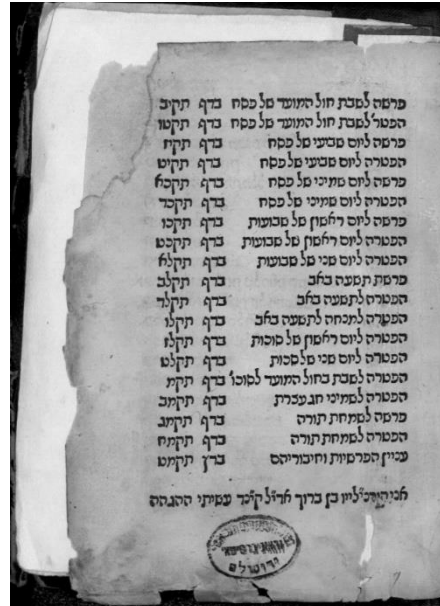 פרשה לשבת חול המועד של פסח בדף תקיב
הפטר' לשבת חול המועד של פסח בדף תקטו
פרשה ליום שביעי של פסח בדף תקיח
הפטרה ליום שביעי של פסח בדף תקיט
פרשה ליום שמיני של פסח בדף תקכא
הפטרה ליום שמיני של פסח בדף תקכד
פרשה ליום ראשון של שבועות בדף תקכו
הפטרה ליום ראשון של שבועות בדף תקכט
הפטרה ליום שני של שבועות בדף תקלא
פרשת תשעה באב בדף תקלב
הפטרה לתשעה באב בדף תקלד
הפטרה למנחה לתשעה באב בדף תקלו
הפטרה ליום ראשון של סוכות בדף תקלז
הפטרה ליום שני של סכות בדף תקלט
הפטרה לשבת בחול המועד לסוכו' בדף תקמ
הפטרה לשמיני חג עצרת בדף תקמב
פרשה לשמחת תורה בדף תקמג
הפטרה לשמחת תורה בדף תקמח
עניין הפרשיות וחיבוריהם בדף תקמט
אני בן ברוך עשיתי ההגהה
ירושלים